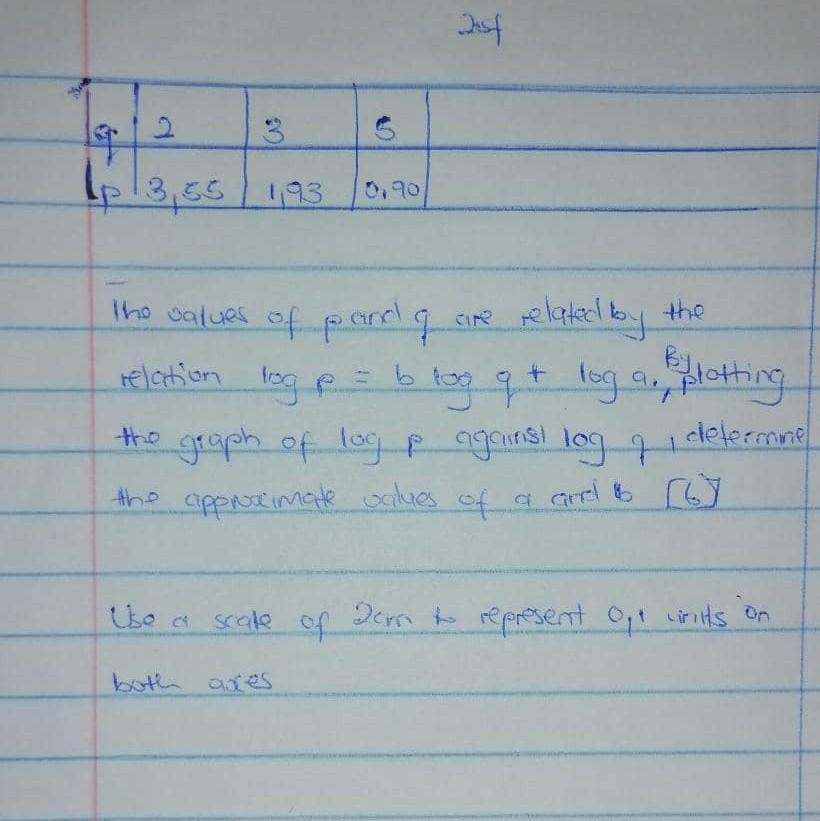 2sf
q 2 3 5
p 3,55 1,93 0,90
The values of p and q are related by the
relation log p = b log q + log a. By plotting
the graph of log p against log q, determine
the approximate values of a and b [6]
Use a scale of 2cm to represent 0,1 units on
both axes